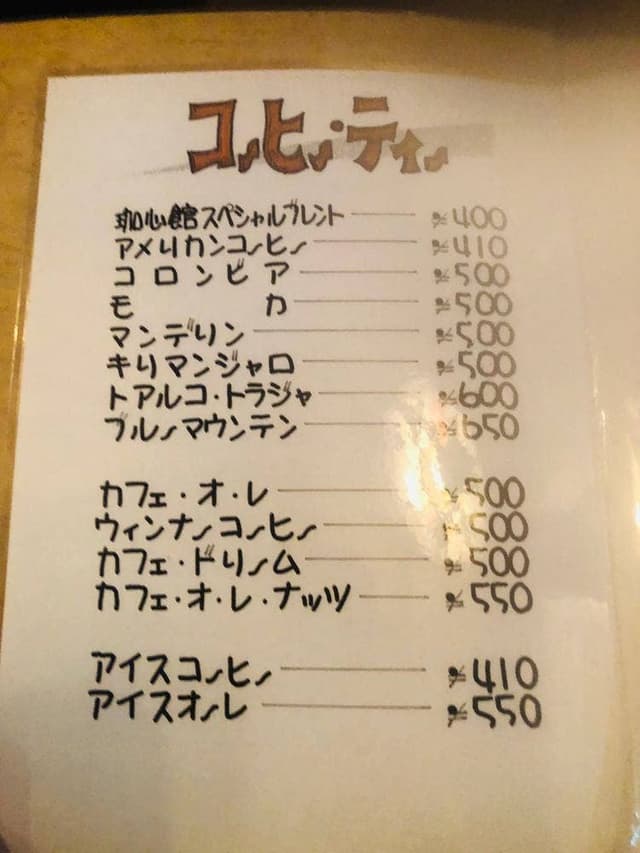 コーヒー・ティー
珈心館スペシャルブレント ¥400
アメリカンコーヒー ¥410
コロンビア ¥500
モカ ¥500
マンデリン ¥500
キリマンジャロ ¥500
トアルコ・トラジャ ¥600
ブルーマウンテン ¥650
カフェ・オ・レ ¥500
ウィンナーコーヒー ¥500
カフェ・ドリーム ¥500
カフェ・オ・レ・ナッツ ¥550
アイスコーヒー ¥410
アイスオーレ ¥550